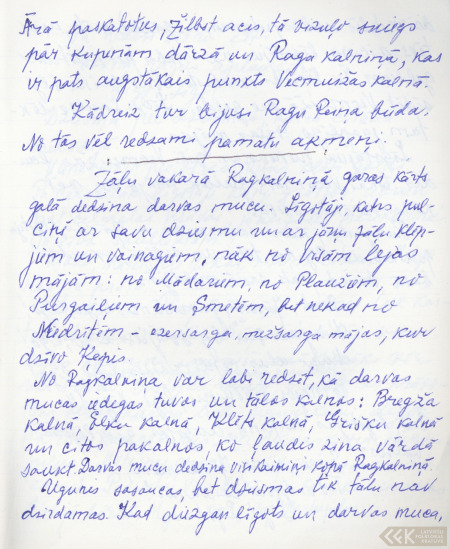 Ārā paskatoties, žilbst acis, tā vizuļo sniegs
pār kupenām dārzā un Raga kalniņā, kas
ir pats augstākais punkts Vecmuižas kalnā.
Kādreiz tur bijusi Ragu Reiņa būda.
No tās vēl redzami pamatu akmeņi.
Zāļu vakarā Ragkalniņā garas kārts
galā dedzina darvas mucu. Līgotāji, katrs pul-
ciņš ar savu dziesmu un ar jāņu zāļu klēp-
jiem un vainagiem, nāk no visām lejas
mājām: no Mādariem, no Plaužiem, no
Purgaiļiem un Smetēm, bet nekad no
Niedrītēm - ezersarga, mežsarga mājas, kur
dzīvo Ķepis.
No Ragkalniņa var labi redzēt, kā darvas
mucas iedegas tuvos un tālos kalnos: Bregža
kalnā, Elku kalnā, Klēts kalnā, Grišku kalnā
un citos pakalnos, ko ļaudis zina vārdā
saukt. Darvas mucu dedzina visi kaimiņi kopā Ragkalniņā.
Ugunis sasaucas, bet dziesmas tik tālu nav
dzirdamas. Kad diezgan līgots un darvas muca,
LATVIEŠU
FOLKLORAS
KRĀTUVE